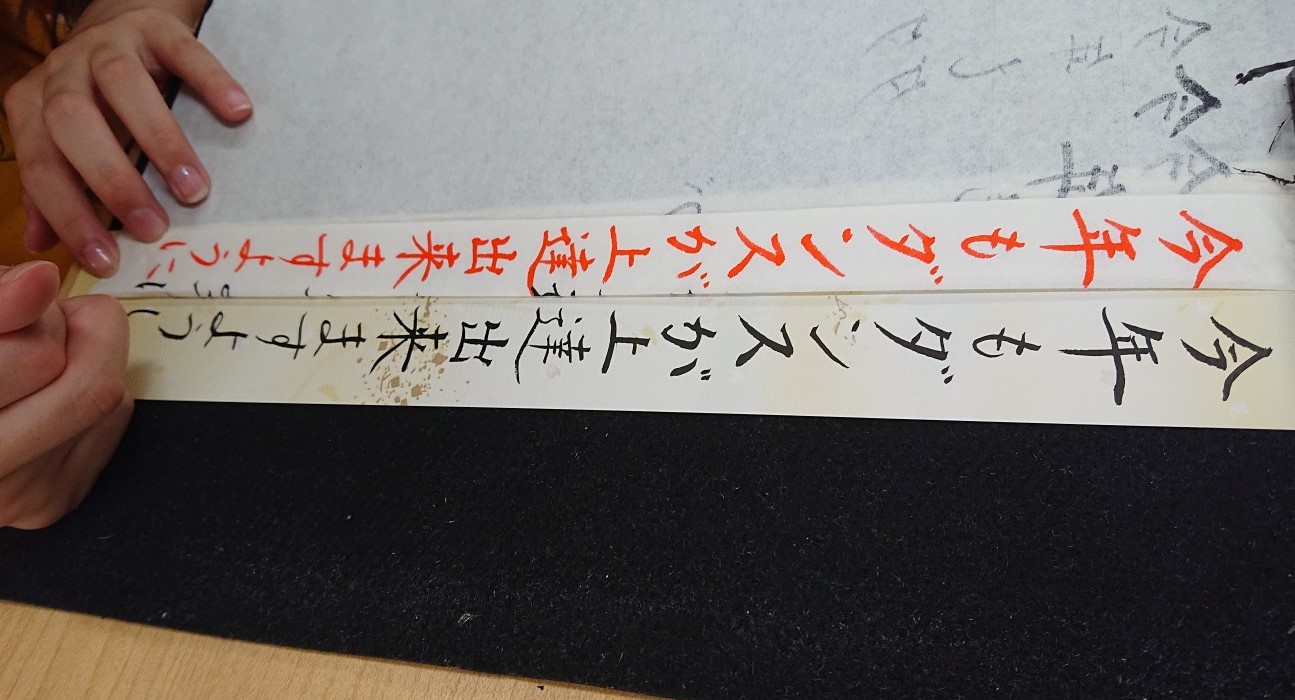 今年もダンスが上達出来ますように
今年もダンスが上達出来ますように